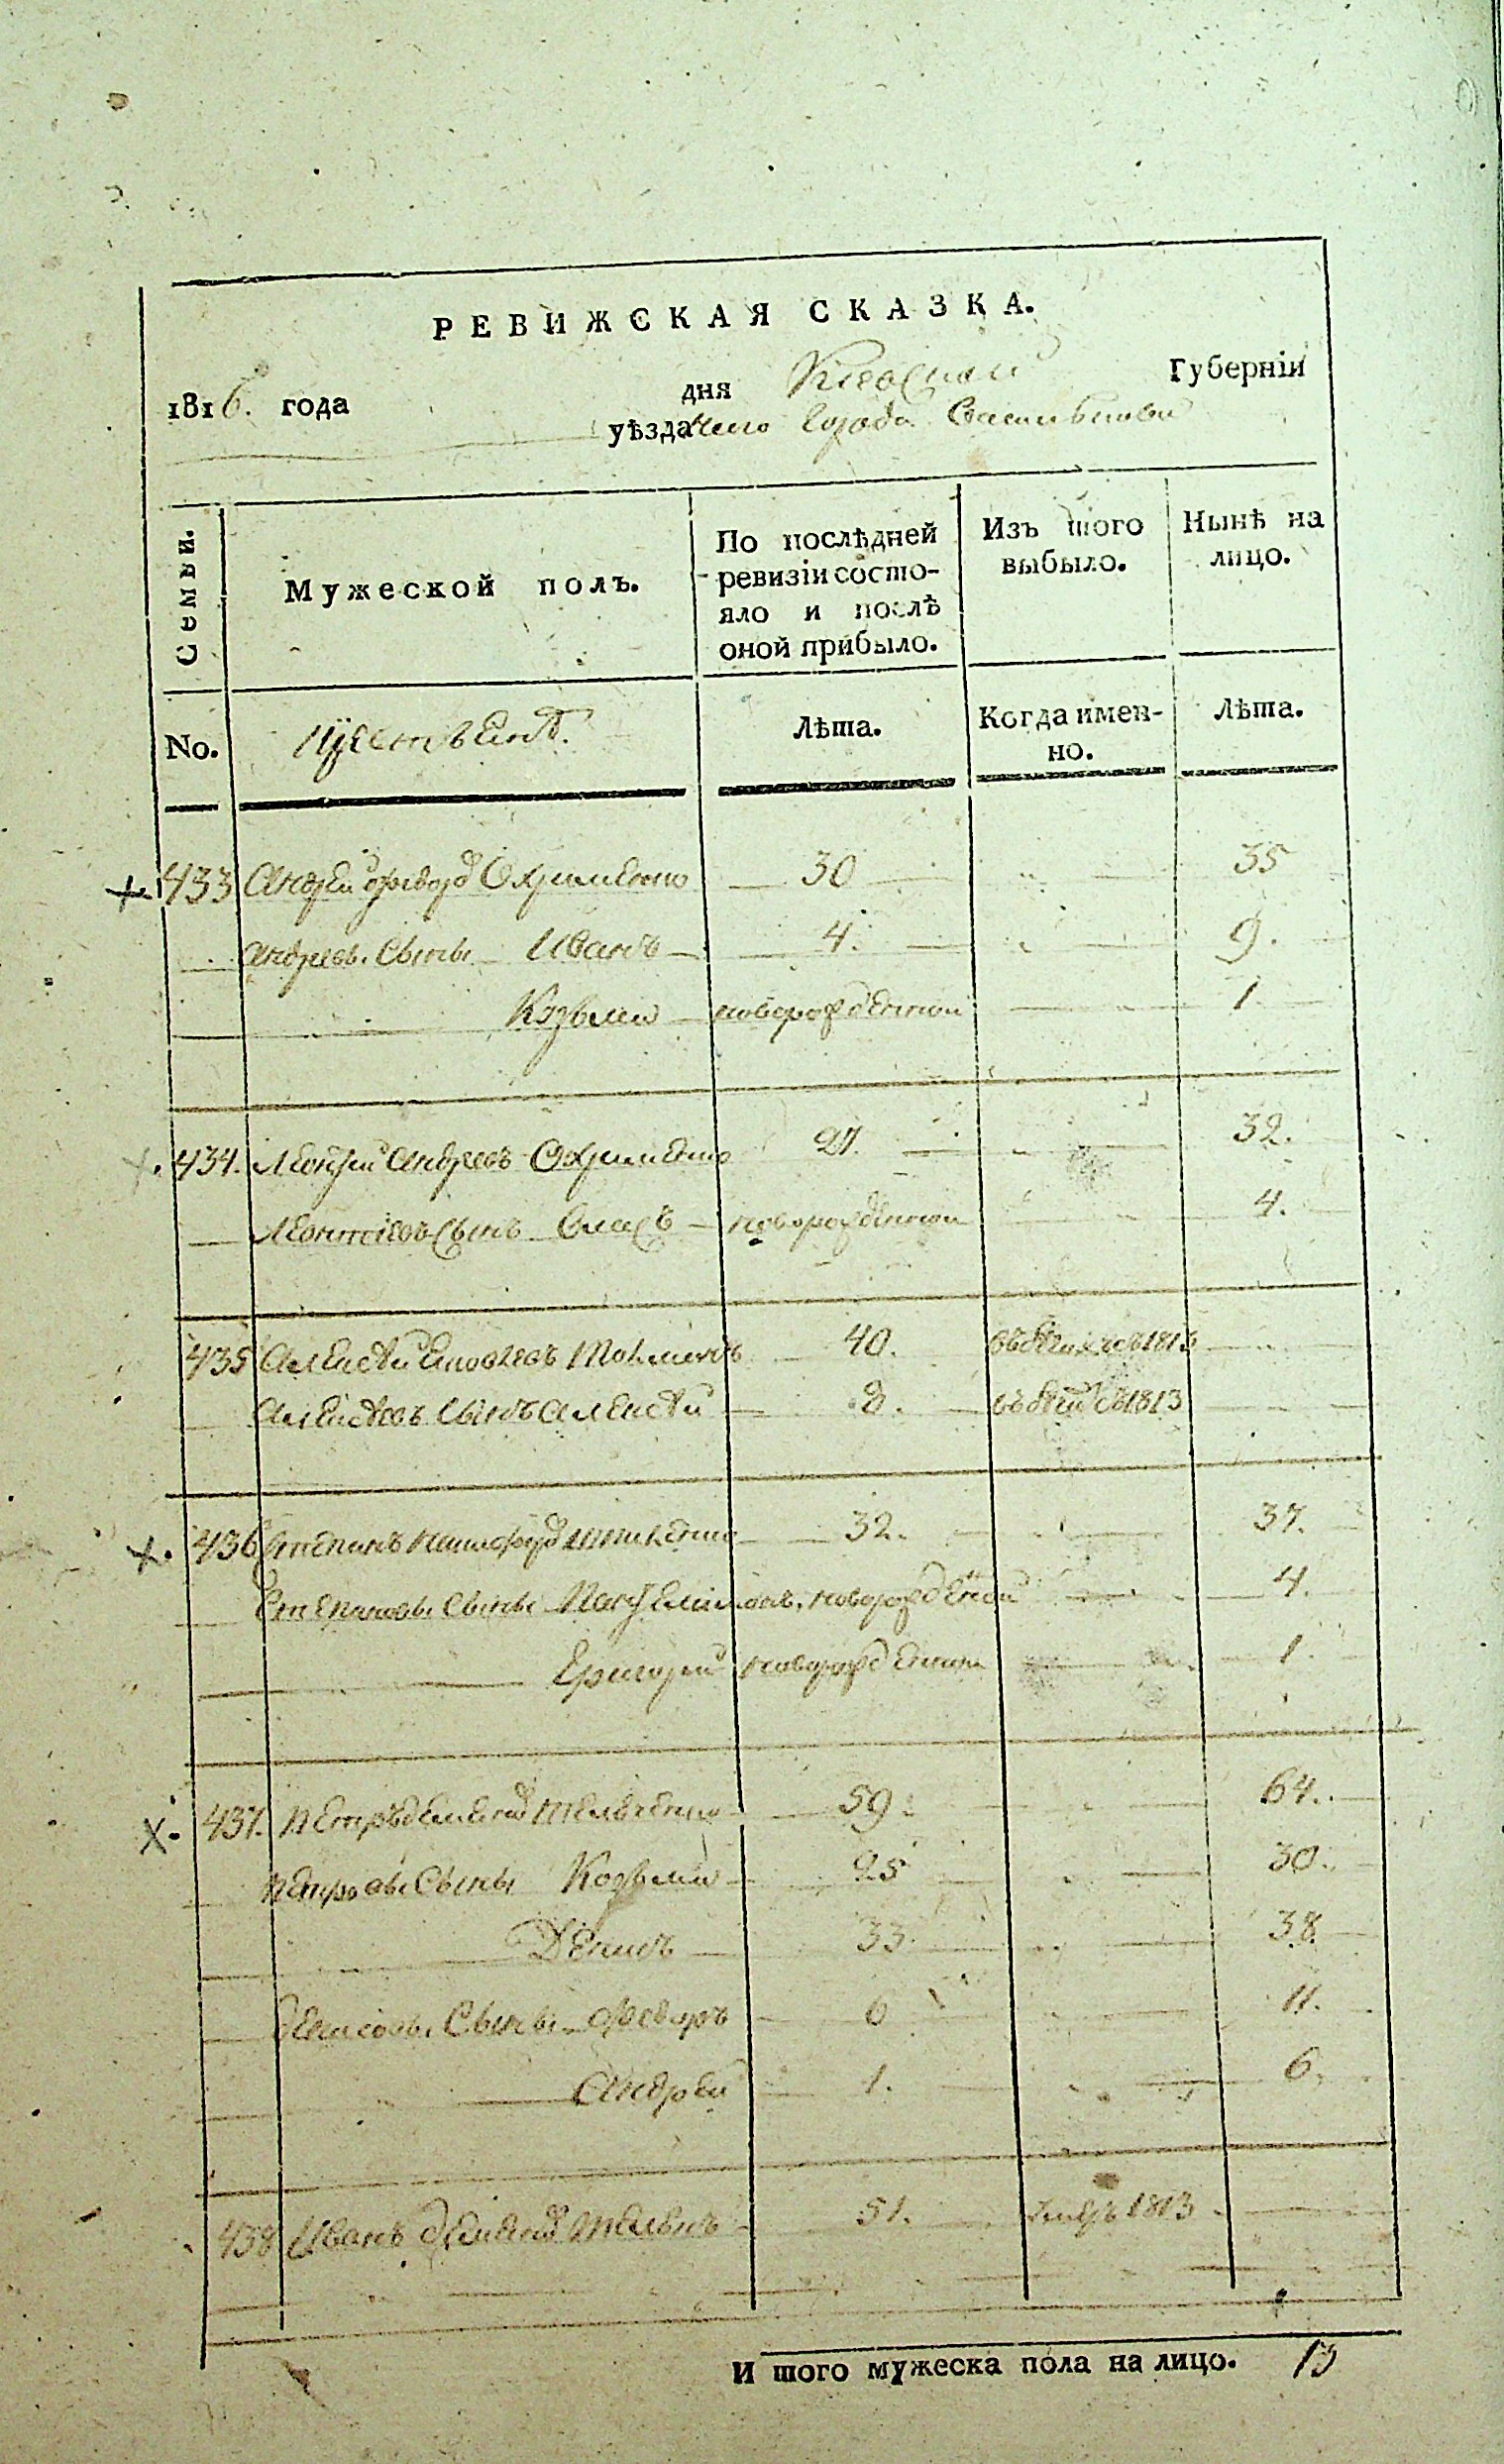 РЕВИЖСКАЯ СКАЗКА.
1816. года дня Кіевской Губерніи
уѣзда города Василькова
Семьи. Мужеской полъ. По послѣдней ревизіи состояло и послѣ оной прибыло. Изъ того выбыло. Нынѣ на лицо.
No. Лѣта. Когда имен-но. Лѣта.
433 Андрей Охрименко 30 35
Андреевы Сыны Иванъ 4. 9.
Козьма новорожденной 1
434. Леонтій Андреевъ Охрименко 27. 32.
Леонтіевъ Сынъ Власъ новорожденной 4.
435 Алексѣй 40.
Алексѣевъ Сынъ Алексѣй 8. 1813
436 Степанъ 32. 37.
Степановы Сыны новорожденой 4.
Григорей новорожденной 1.
437. Петръ 59. 64.
Петровы Сыны Козьма 25 30.
Денисъ 33 38
Денисовы Сыны Федоръ 6 11.
Андрей 1. 6.
438 Иванъ 51. 1813
И того мужеска пола на лицо. 13